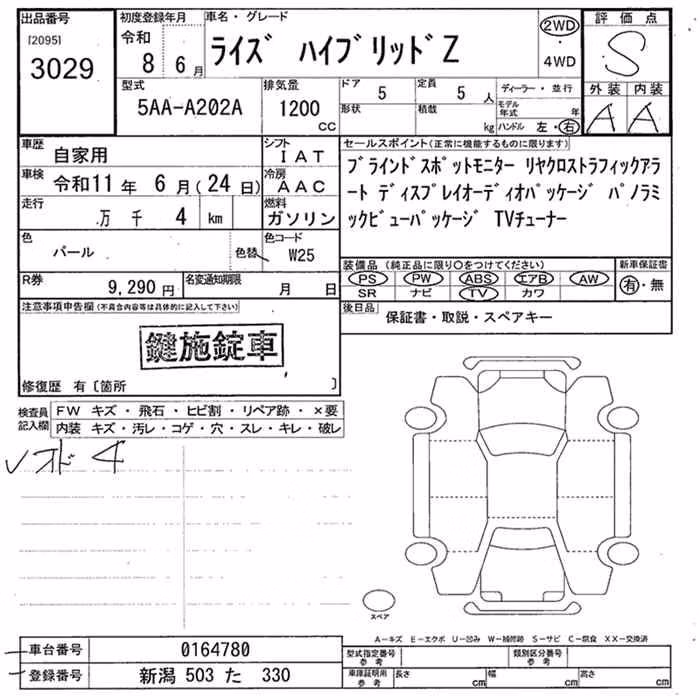 出品番号
[2095]
3029
初度登録年月
令和
8 6月
車名・グレード
ライズ ハイブリッドZ
2WD
・
4WD
評価点
S
外装 内装
A A
型式
5AA-A202A
排気量
1200
CC
ドア
5
形状
定員
5人
積載
kg
ディーラー・並行
モデル年式 年
ハンドル 左・右
車歴
自家用
シフト
IAT
車検
令和11年 6月(24日)
冷房
AAC
走行
万 千 4 km
燃料
ガソリン
色
パール
色替
色コード
W25
R券
9,290円
名変通知期限
月 日
セールスポイント(正常に機能するものに限ります)
ブラインドスポットモニター リヤクロストラフィックアラ
ート ディスプレイオーディオパッケージ パノラミ
ックビューパッケージ TVチューナー
装備品(純正品に限り○をつけてください)
PS PW ABS エアB AW
SR ナビ TV カワ
新車保証書
有・無
後日品
保証書・取説・スペアキー
注意事項申告欄(不具合内容等は具体的に記入して下さい)
鍵施錠車
修復歴 有〔箇所 〕
検査員
記入欄
FW キズ・飛石・ヒビ割・リペア跡・×要
内装 キズ・汚レ・コゲ・穴・スレ・キレ・破レ
スペア
A-キズ E-エクボ U-凹み W-補修跡 S-サビ C-腐食 XX-交換済
車台番号
0164780
登録番号
新潟 503 た 330
型式指定番号
参考
類別区分番号
参考
車庫証明用
参考
長さ cm
幅 cm
高さ cm